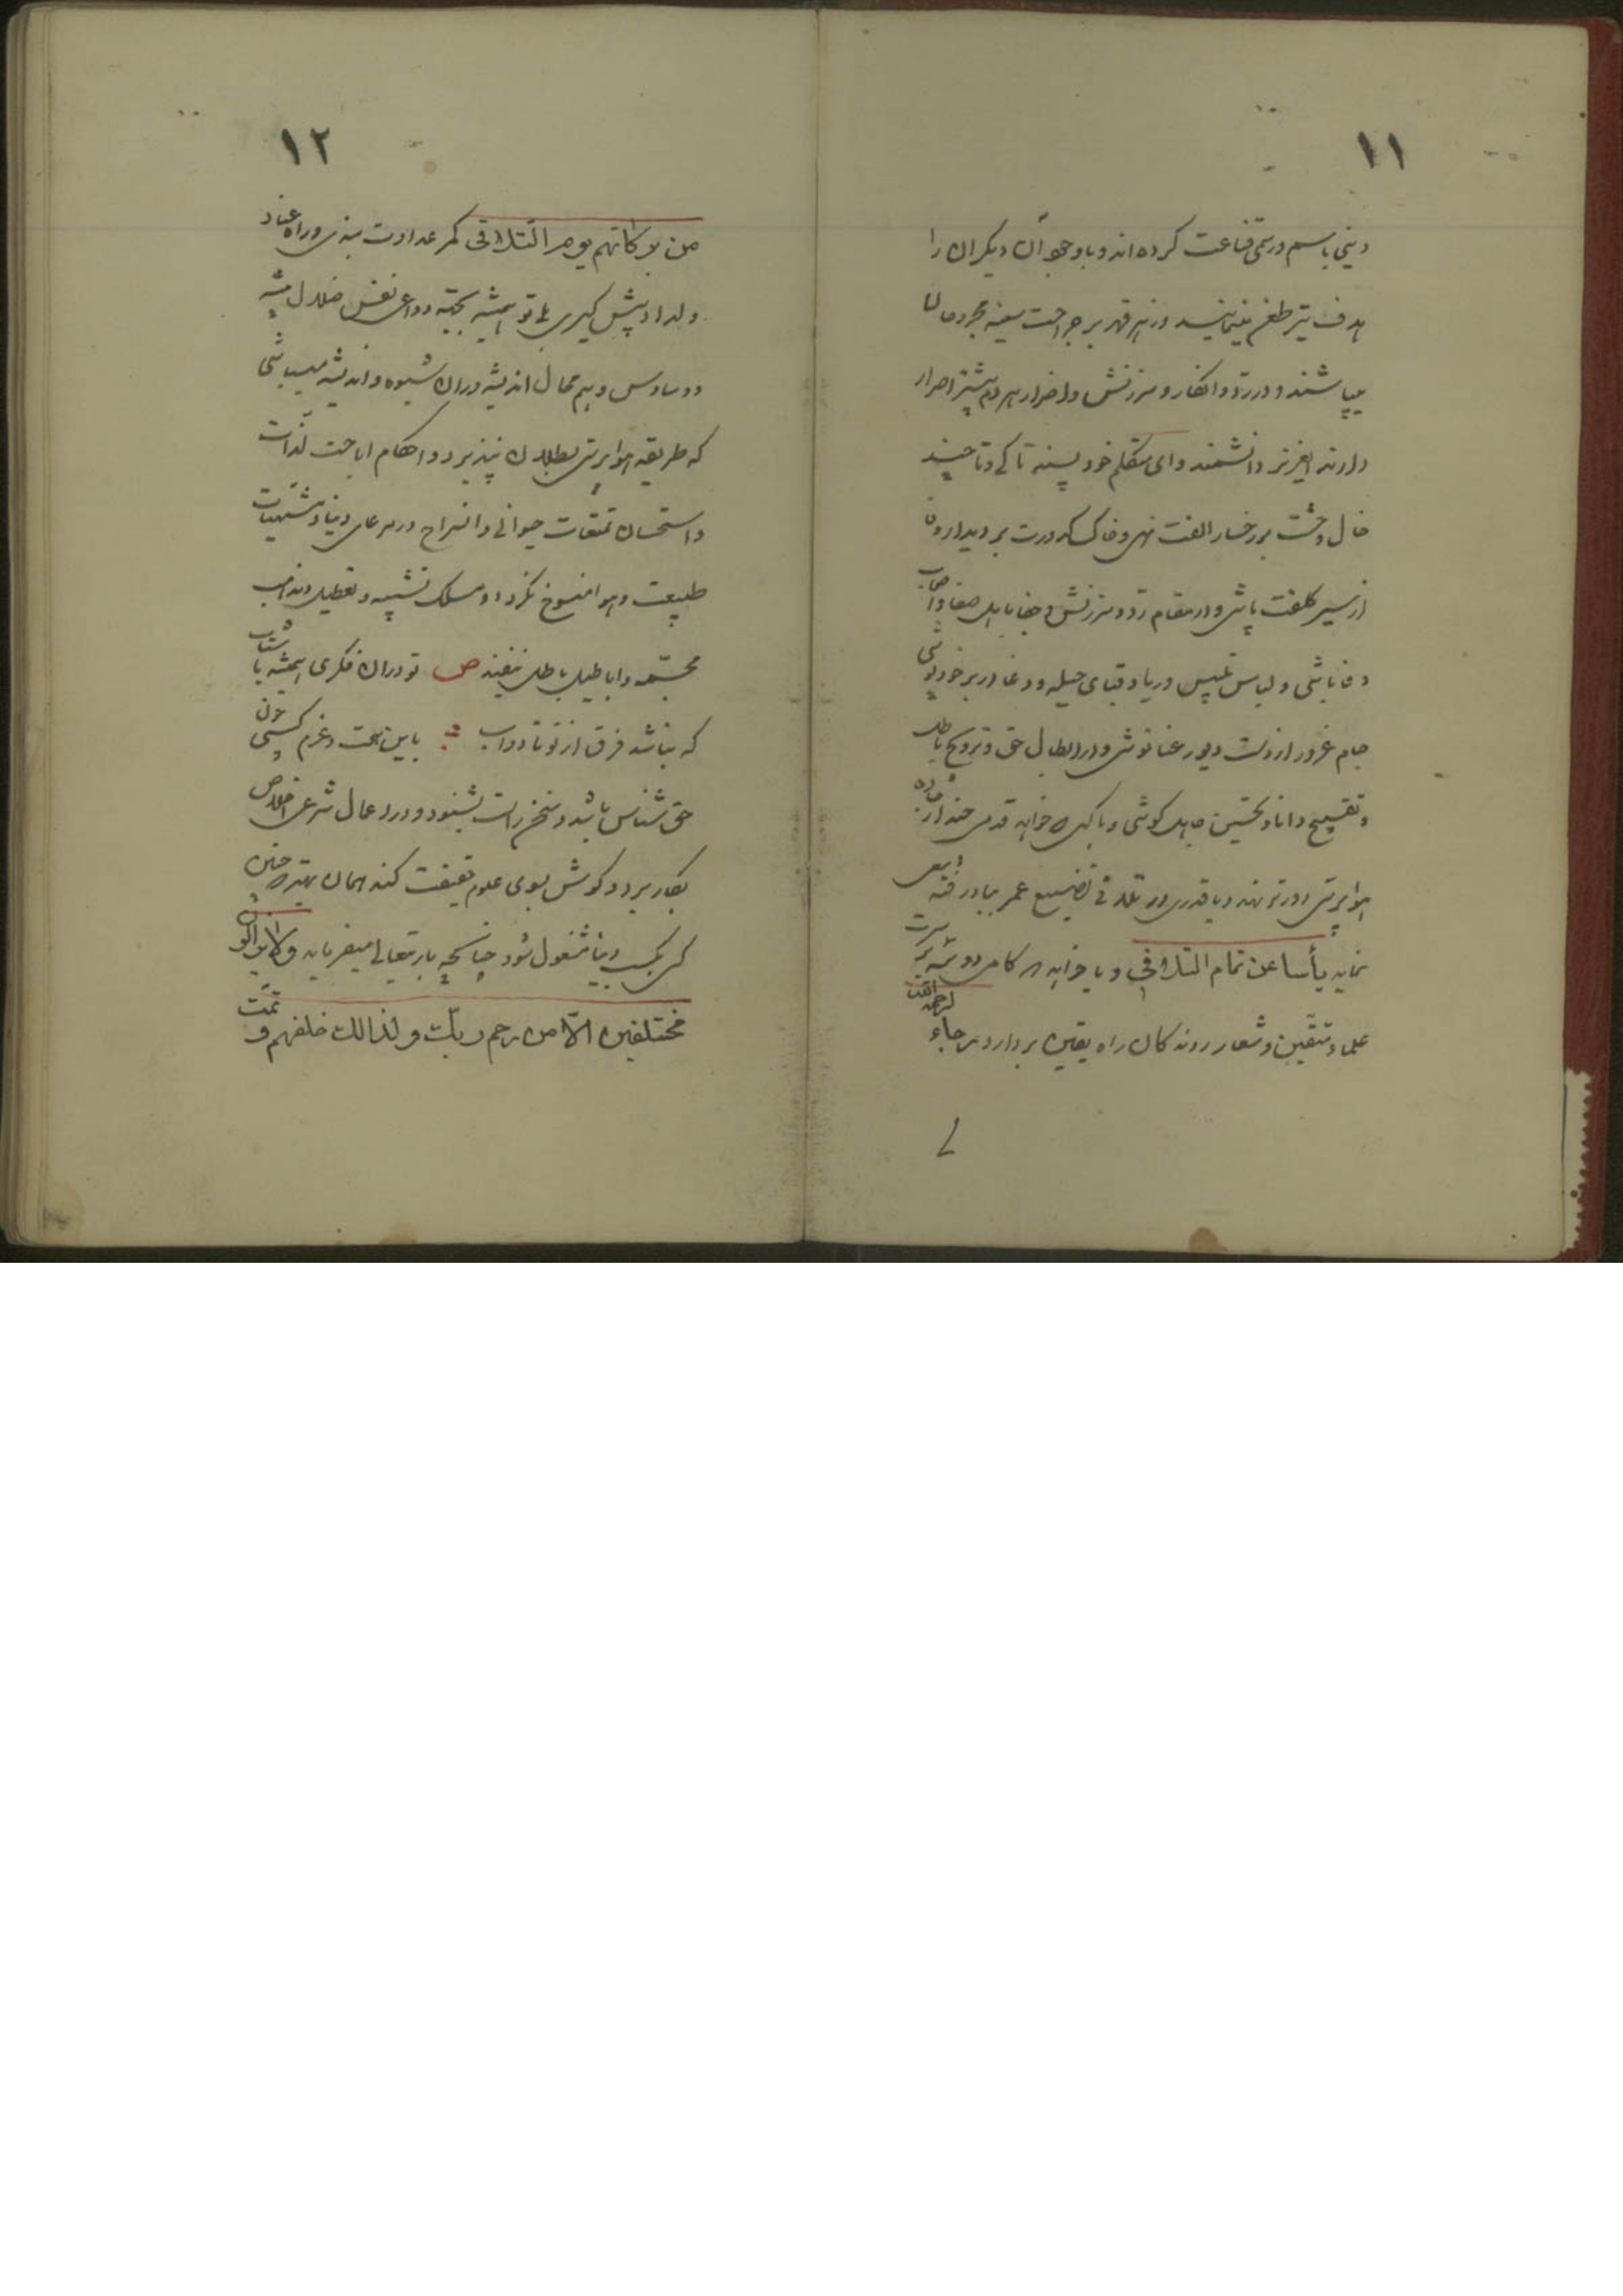 ۱۱
دینی باسم ورسمی قناعت کرده اند وباوجود آن دیکران را
هدف تیر طعن مینمایند وزهر قهر بر جراحت سینه مجروحان
میپاشند ودر رد وانکار وسرزنش واضرار هر دم بیشتر اصرار
دارند ایعزیز دانشمند وای متکلم خود پسند تا کی وتا چند
خال وحشت بر رخسار الفت نهی وخاک کدورت بر دیدار
از سر کلفت پاشی ودر مقام رد وسرزنش وجفا با اهل صفا واصحاب
وفا باشی ولباس تلبیس وریا وقبای حیله ودغا در بر خود پوشی
جام غرور از دست دیو رعنا نوشی ودر ابطال حق وترویج باطل
وتقبیح دانا وتحسین جاهل کوشی ویا کهی خواهد قدمی چند از جاده
هوا پرستی دورتر نهد ویا قدری در تلافی تضییع عمر ببادرفته سعی
نماید یأسا عن تمام التلافی ویا خواهد کامی دو سه بر سیرت
علماء متقین وشعار روندکان راه یقین بردارد رجاء
۱۲
من برکاتهم یوم التلاقی کمر عداوت بندی وراه عناد
ولداد پیش کیری بلی تو همیشه بخیه دواعی نفس ضلال پیشه
ووساوس وهم محال اندیشه دران شیوه واندیشه میباشی
که طریقه هوا پرستی بطلان نپذیرد واحکام اباحت لذات
واستحسان تمتعات حیوانی وانسراح در مرعای دنیا ومشتهیات
طبیعت وهوا منسوخ نکردد ومسلک تشبیه وتعطیل ومذاهب
مجسمه واباطیل باطل نیفتد ص تو دران فکری همیشه با شتاب
که نباشد فرق از تو تا دواب باین همت وعزم کسی چون
حق شناس باشد وسخن راست بشنود ودر اعمال شرعی اخلاص
بکار برد وکوشش بسوی علوم حقیقت کند همان بهتر چنین
کس بکسب دنیا مشغول شود چنانچه باریتعالی میفرماید ولا یزالون
مختلفین الا من رحم ربک ولذالک خلقهم و تمت